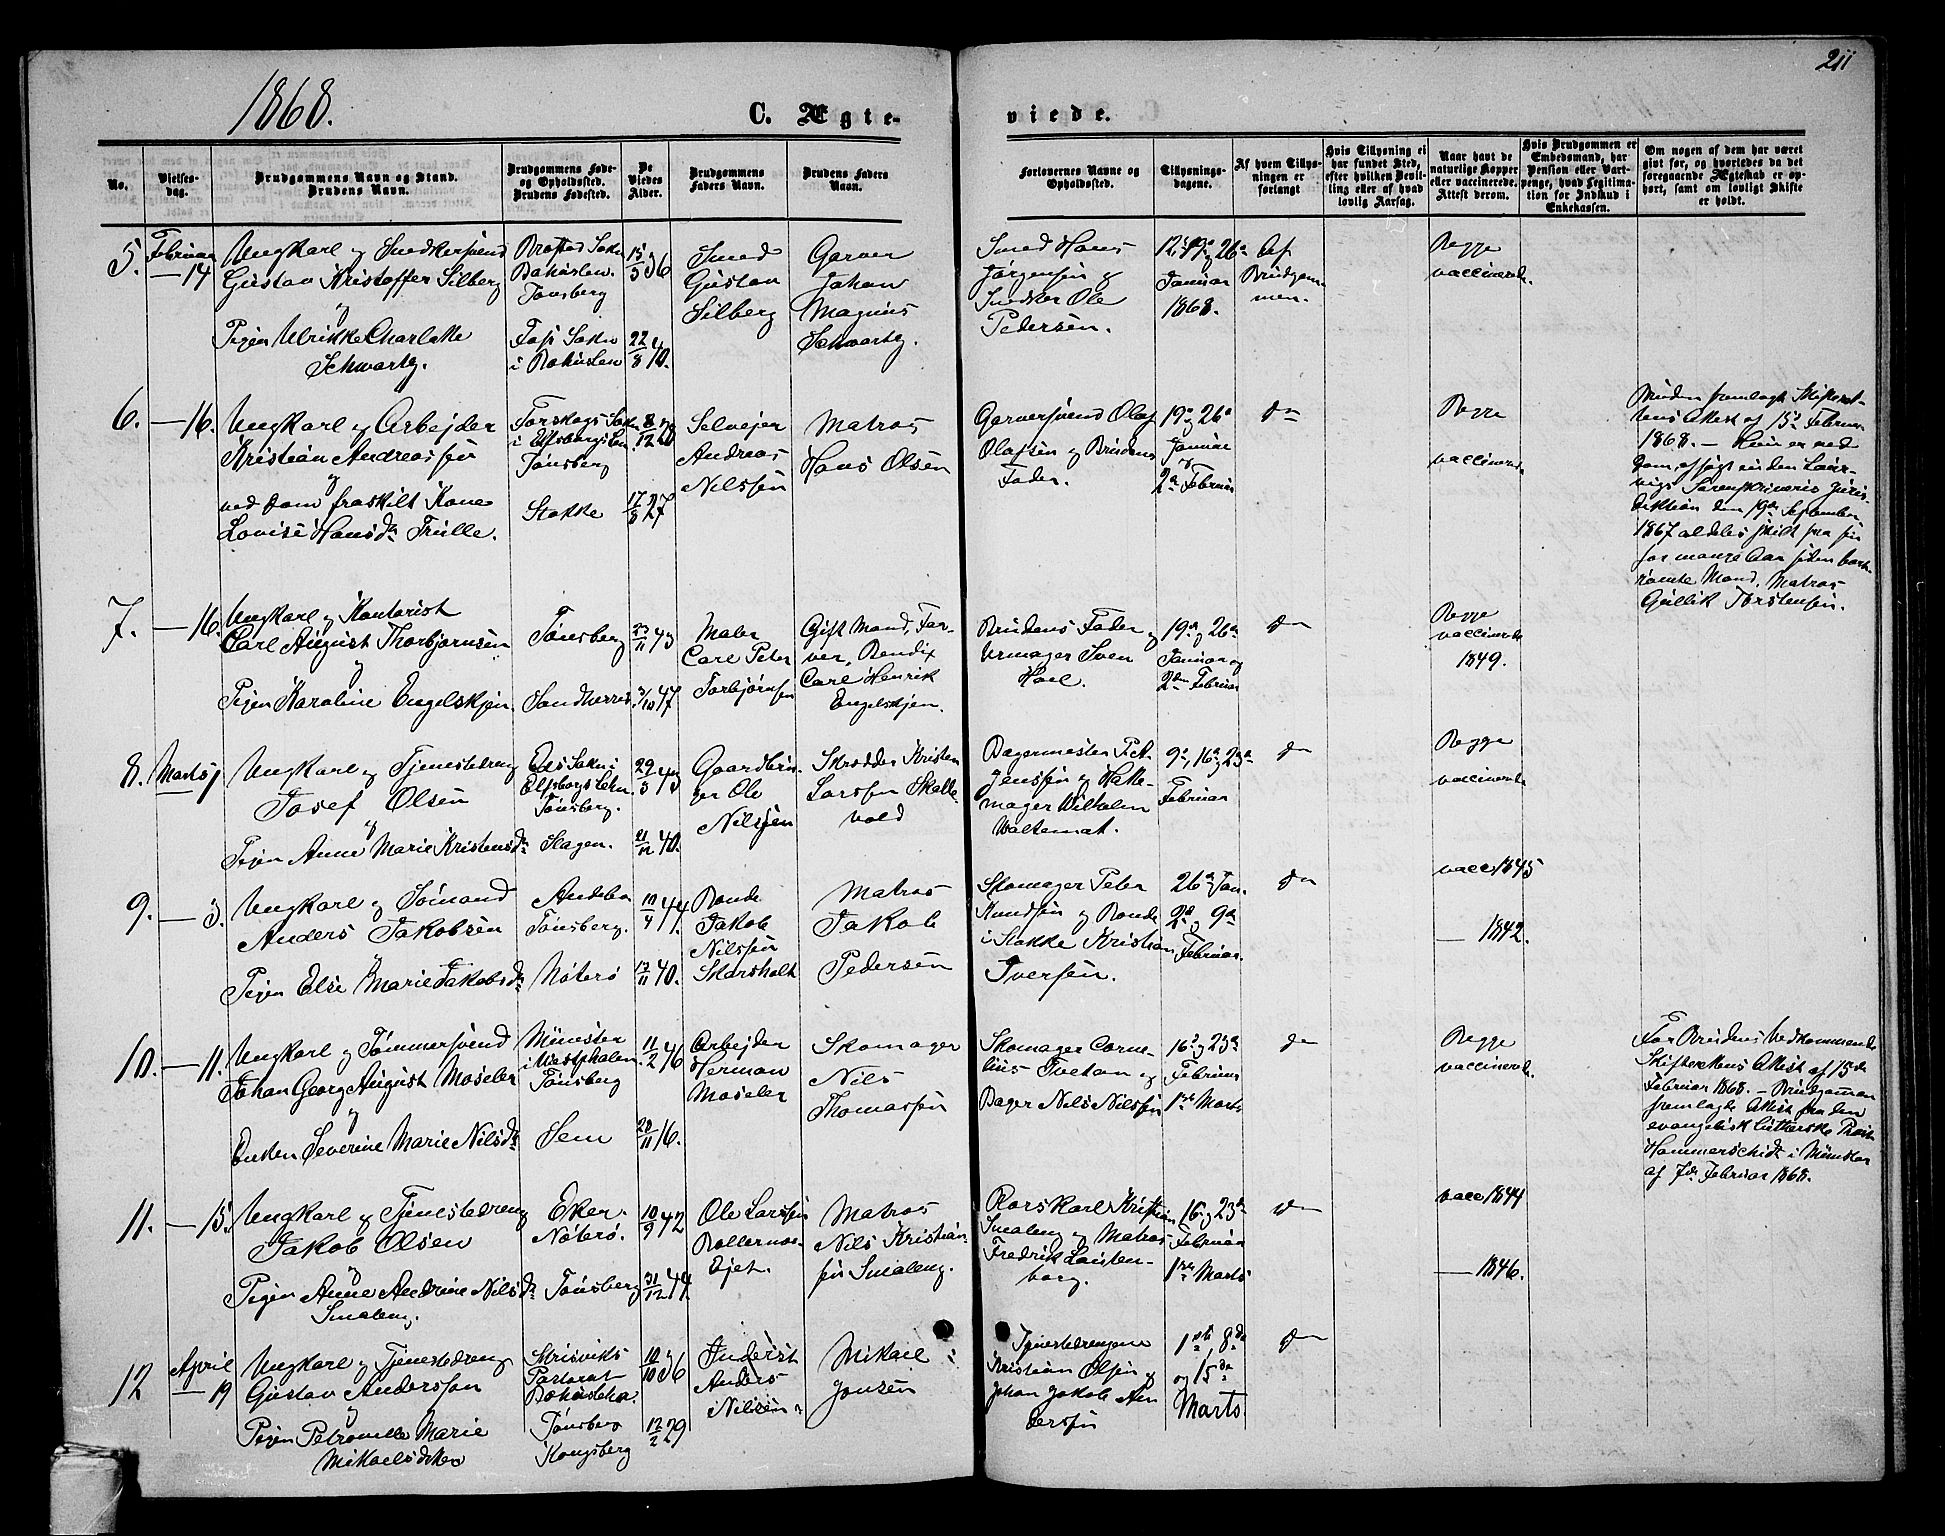 211
1868.
C. Ægte-
viede.
No.
Vielses-
dag.
Brudgommens Navn og Stand.
Brudens Navn.
Brudgommens Føde-
og Opholdssted.
Brudens Fødested.
De
Viedes
Alder.
Brudgommens
Faders Navn.
Brudens Faders
Navn.
Forlovernes Navne og
Opholdssted.
Tillysnings-
dagene.
Af hvem Tillys-
ningen er
forlangt
Hvis Tillysning ei
har fundet Sted,
efter hvilken Bevil-
ling eller af hvad
lovlig Aarsag.
Naar havt de
naturlige Kopper
eller vaccinerede.
Attest derom.
Hvis Brudgommen er
Embedsmand, har
Pension eller Vart-
penge, hvad Legitima-
tion for Indskud i
Enkekassen.
Om nogen af dem har været
gift før, og hvorledes da det
foregaaende Ægteskab er op-
hørt, samt om lovligt Skifte
er holdt.
5.
Februar
— 14
Ungkarl og Snedkersvend
Gustav Kristoffer Silberg
og
Pigen Ulrikke Charlotte
Schwartz.
Sokn
Bahuslen.
Tønsberg
Foss Sokn
i Bahuslen
15/5 36
22/8 40.
Smed
Gustav
Silberg
Garver
Johan
Magnus
Schwartz.
Smed Hans
Jörgensen og
Snedker Ole
Pedersen.
12te 19de og 26de
Januar
1868.
Af
Brudgom-
men.
Begge
vaccinerede.
6.
— 16.
Ungkarl og Arbejder
Kristian Andreassen
og
ved Dom fraskilt Kone
Lovise Hansdr Trulle.
Sokn
i Elfsborgs Len
Tønsberg
Stokke
8/12 28
17/8 27
Selvejer
Andreas
Nilssen
Matros
Hans Olsen
Garversvend Olaf
Olafsen og Brudens
Fader.
19de og 26de
Januar
og
2den Februar
do
Begge
vaccinerede
Bruden fremlagt Skifteret-
tens Attest af 15de Februar
1868. — Hun er ved
Dom, afsagt inden Laur-
vigs Sorenskriveris Juris-
diktion den 19de September
1867 aldeles skilt fra sin
for mange Aar siden bort-
rømte Mand, Matros
Gullik Torstensen.
7.
— 16.
Ungkarl og Kontorist
Carl August Thorbjørnsen
og
Pigen Karoline Engelskjøn.
Tønsberg
Sandherred
23/11 43
3/10 47
Maler
Carl Peter
Torbjørnsen
Gift Mand, Far-
ver, Bendix
Carl Henrik
Engelskjøn.
Brudens Fader og
Urmager Sven
Hoel.
19de og 26de
Januar og
2den Februar
do
Begge
vaccinerede
1849.
8.
Marts 1
Ungkarl og Tjenestedreng
Josef Olsen
og
Pigen Anne Marie Kristensdr
Eds Sokn i
Elfsborgs Lehn
Tønsberg.
Slagen.
29/3 43
21/12 40.
Gaardbru-
ger Ole
Nilssen
Skrædder Kristen
Larssen Skalle-
vold
Bagermester P. A.
Jenssen og Hatte-
mager Wilhelm
Waltemat.
9de, 16de og 23de
Februar
do
Begge
vaccinerede
9.
— 3.
Ungkarl og Sømand
Anders Jakobsen
og
Pigen Else Marie Jakobsdr
Andebu
Tønsberg.
Nøterø
10/4 44.
13/11 40.
Bonde
Jakob
Nilssen
Skorsholt
Matros
Jakob
Pedersen
Skomager Peter
Knudsen og Bonde
i Stokke Kristian
Iversen.
26de Jan.
2den og 9de
Februar.
do
vacc. 1845
— 1842.
10.
— 11.
Ungkarl og Tømmersvend
Johan Georg August Moseler
og
Enken Severine Marie Nilsdr
Münster
i Westphalen.
Tønsberg
Sem
11/2 46
20/11 16.
Arbejder
Herman
Moseler
Skomager
Nils
Thomassen
Skomager Corne-
lius Tvetan og
Bager Nils Nilssen
16de og 23de
Februar
1ste Marts
do
Begge
vaccinerede.
For Brudens Vedkommende
Skifterettens Attest af 15de
Februar 1868. — Brudgommen
fremlagde Attest fra den
evangelisk lutherske Præst
Hammerschidt i Münster
af 7de Februar 1868.
11.
— 15.
Ungkarl og Tjenestedreng
Jakob Olsen
og
Pigen Anne Andrine Nilsdr
Smaleng.
Eker.
Nøterø.
Tønsberg
10/9 42
31/12 44.
Ole Larssen
Bollernes
Ejet.
Matros
Nils Kristian-
sen Smaleng.
Rorskarl Kristian
Smaleng og Matros
Fredrik Lauten-
borg.
16de og 23de
Februar
1ste Marts
do
vacc 1844
— 1846.
12
April
— 19
Ungkarl og Tjenestedreng
Gustav Anderssen
og
Pigen Petronelle Marie
Mikaelsdatter
Pastorat
Bahuslehn.
Tønsberg
Kongsberg
10/10 36
12/2 29
Inderst
Anders
Nilssen
Mikael
Jonsen
Tjenestedrengene
Kristian Olsen og
Johan Jakob An
dersen
1ste, 8de
og 15de
Marts
do